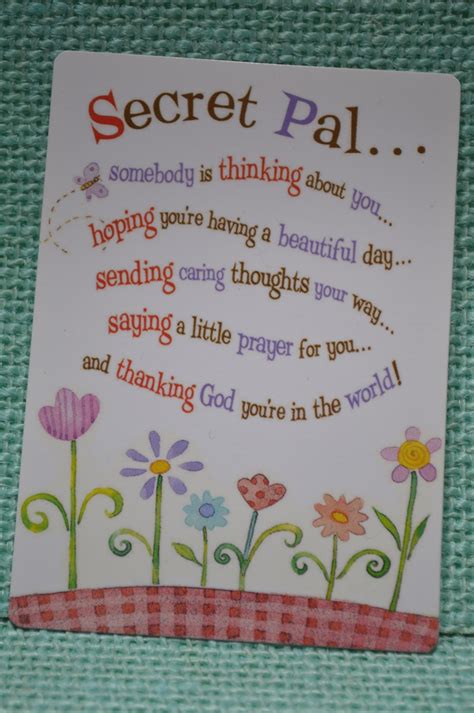 Secret Pal...
somebody is thinking about you...
hoping you're having a beautiful day...
sending caring thoughts your way...
saying a little prayer for you...
and thanking God you're in the world!